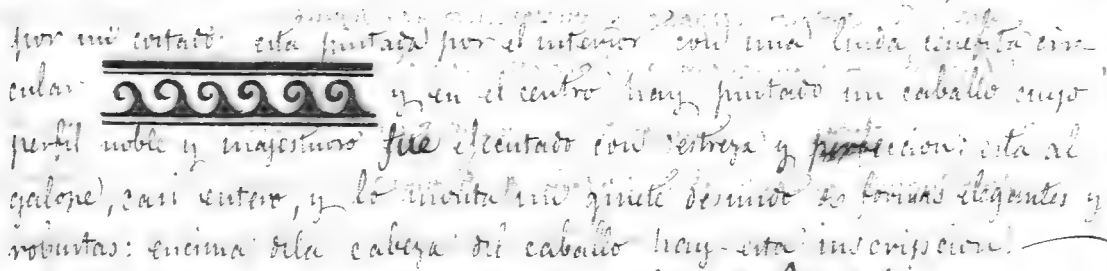 por mi costado esta pintada por el interior con una linda cenefita cir-
cular y en el centro hay pintado un caballo cuyo
perfil noble y majestuoso fue ejecutado con destreza y perfeccion: esta al
galope, casi entero, y lo monta un ginete desnudo de formas elegantes y
robustas: encima dela cabeza del caballo hay esta inscripcion: